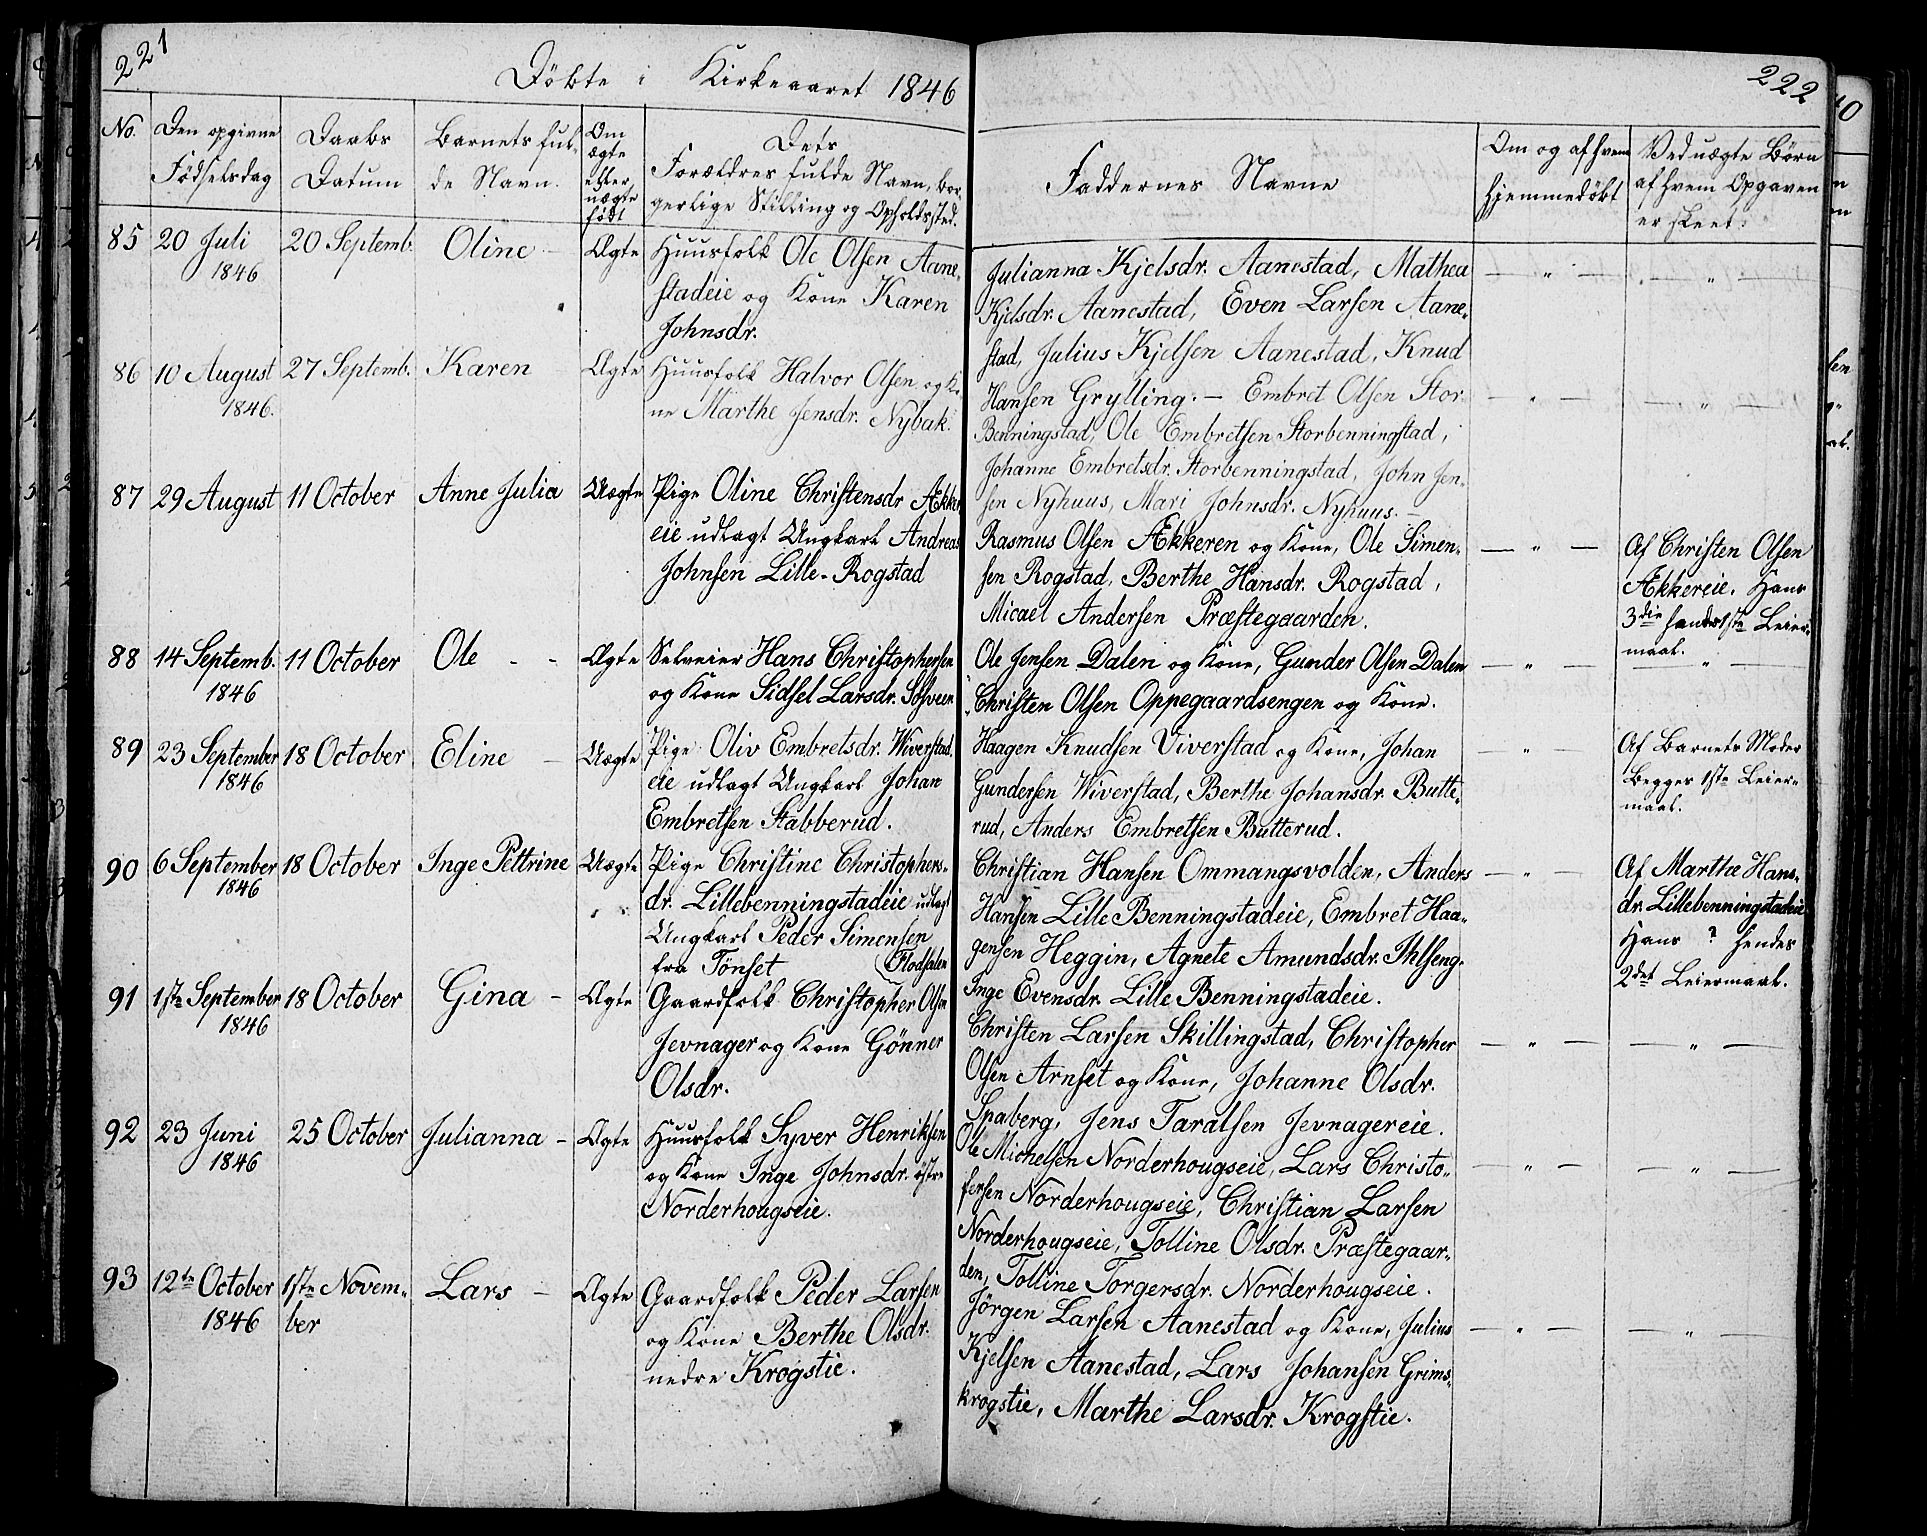 221
Döbte i Kirkeaaret 1846
222
No.
Den opgivne
Födselsdag
Daabs
Datum
Barnets ful-
de Navn.
Om
ægte
eller
uægte
födt
Dets
Forældres fulde Navn, bor-
gerlige Stilling og Opholdssted.
Faddernes Navne
Om og af hvem
hjemmedöbt
Ved uægte Börn
af hvem Opgaven
er skeet.
85 20 Juli 20 Septemb. Oline Ægte Huusfolk Ole Olsen Aane-
1846 stadeie og Kone Karen
Johnsdr.
Julianna Kjelsdr. Aanestad, Mathea — " — — " —
Kjelsdr. Aanestad, Even Larsen Aane-
stad, Julius Kjelsen Aanestad, Knud
Hansen Grylling. —
86 10 August 27 Septemb. Karen Ægte Huusfolk Halvor Olsen og Ko-
1846. ne Marthe Jensdr. Nybak.
Embret Olsen Stor — " — — " —
Benningstad, Ole Embretsen Storbenningstad,
Johanne Embretsdr. Storbenningstad, John Jen-
sen Nyhuus, Mari Johnsdr. Nyhuus. —
87 29 August 11 October Anne Julia Uægte Pige Oline Christensdr Ækker
eie udlagt Ungkarl Andreas
Johnsen Lille-Rogstad
Rasmus Olsen Ækkeren og Kone, Ole Simen- — " —
sen Rogstad, Berthe Hansdr. Rogstad,
Micael Andersen Præstegaarden.
Af Christen Olsen
Ækkereie. Hans
3die hendes 1ste Leier-
maal.
88 14 Septemb. 11 October Ole - - Ægte Selveier Hans Christophersen
1846 og Kone Sidsel Larsdr.
Ole Jensen Dalen og Kone, Gunder Olsen Dalen — " — " —
Christen Olsen Oppegaardsengen og Kone.
89 23 September 18 October Eline — Uægte Pige Oliv Embretsdr. Wiverstad
1846 eie udlagt Ungkarl Johan
Embretsen Stabberud.
Haagen Knudsen Viverstad og Kone, Johan — " —
Gundersen Wiverstad, Berthe Johansdr. Butte-
rud, Anders Embretsen Butterud.
Af Barnets Moder
Begges 1ste Leier-
maal.
90 6 September 18 October Inge Pettrine Uægte Pige Christine Christophers-
1846 dr. Lillebenningstadeie udlagt
Ungkarl Peder Simensen
fra Tönset
Christian Hansen Ommangsvolden, Anders — " —
Hansen Lille Benningstadeie, Embret Haa-
gensen Heggin, Agnete Amundsdr. Ihlseng.
Inge Evensdr. Lille Benningstadeie.
Af Marthe Hans-
dr. Lillebenningstadeie
Hans ? hendes
2det Leiermaal.
91 1ste September 18 October Gina — Ægte Gaardfolk Christopher Olsen
1846 Jevnager og Kone Gönner
Olsdr.
Christen Larsen Skillingstad, Christopher — " — — " —
Olsen Arnset og Kone, Johanne Olsdr.
Spaberg, Jens Taralsen Jevnagereie.
92 23 Juni 25 October Julianna - Ægte Huusfolk Syver Henriksen
1846 og Kone Inge Johnsdr. östre
Norderhougseie.
Ole Michelsen Norderhougseie, Lars Christo- — " — — " —
fersen Norderhougseie, Christian Larsen
Norderhougseie, Tolline Olsdr. Præstegaar-
den, Tolline Torgersdr. Norderhougseie.
93 12te October 1ste Novem- Lars — Ægte Gaardfolk Peder Larsen
1846 ber og Kone Berthe Olsdr.
nedre Krogstie.
Jörgen Larsen Aanestad og Kone, Julius — " — — " —
Kjelsen Aanestad, Lars Johansen Grims-
krogstie, Marthe Larsdr. Krogstie.